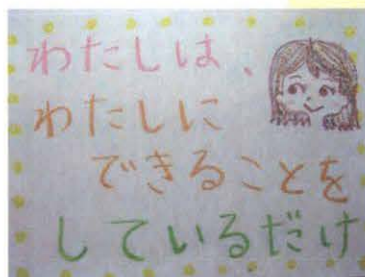 わたしは、
わたしに
できることを
しているだけ